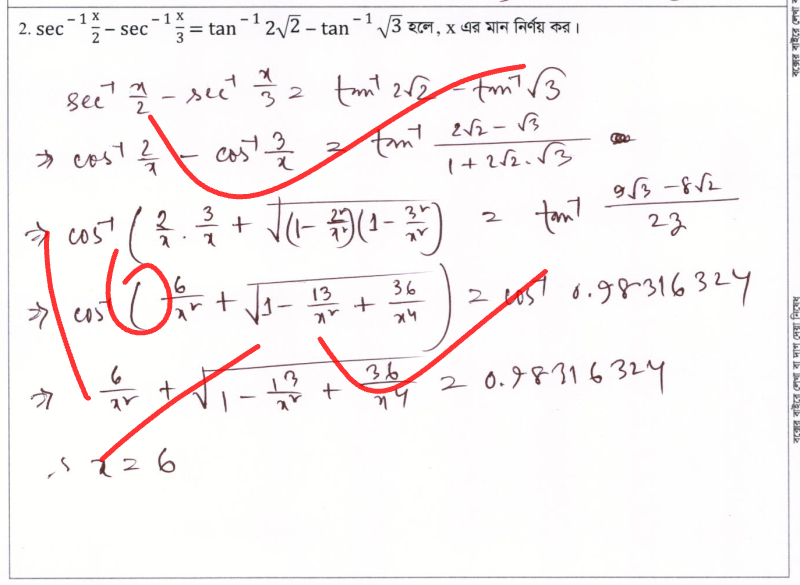 2. sec⁻¹ x/2 − sec⁻¹ x/3 = tan⁻¹ 2√2 − tan⁻¹ √3 হলে, x এর মান নির্ণয় কর।
sec⁻¹ x/2 − sec⁻¹ x/3 = tan⁻¹ 2√2 − tan⁻¹ √3
⇒ cos⁻¹ 2/x − cos⁻¹ 3/x = tan⁻¹ (2√2 − √3)/(1 + 2√2·√3)
⇒ cos⁻¹ (2/x · 3/x + √((1 − 2²/x²)(1 − 3²/x²))) = tan⁻¹ (9√3 − 8√2)/23
⇒ cos⁻¹ (6/x² + √(1 − 13/x² + 36/x⁴)) = cos⁻¹ 0.98316324
⇒ 6/x² + √(1 − 13/x² + 36/x⁴) = 0.98316324
∴ x = 6
বক্সের বাইরে লেখা বা দাগ দেয়া নিষেধ